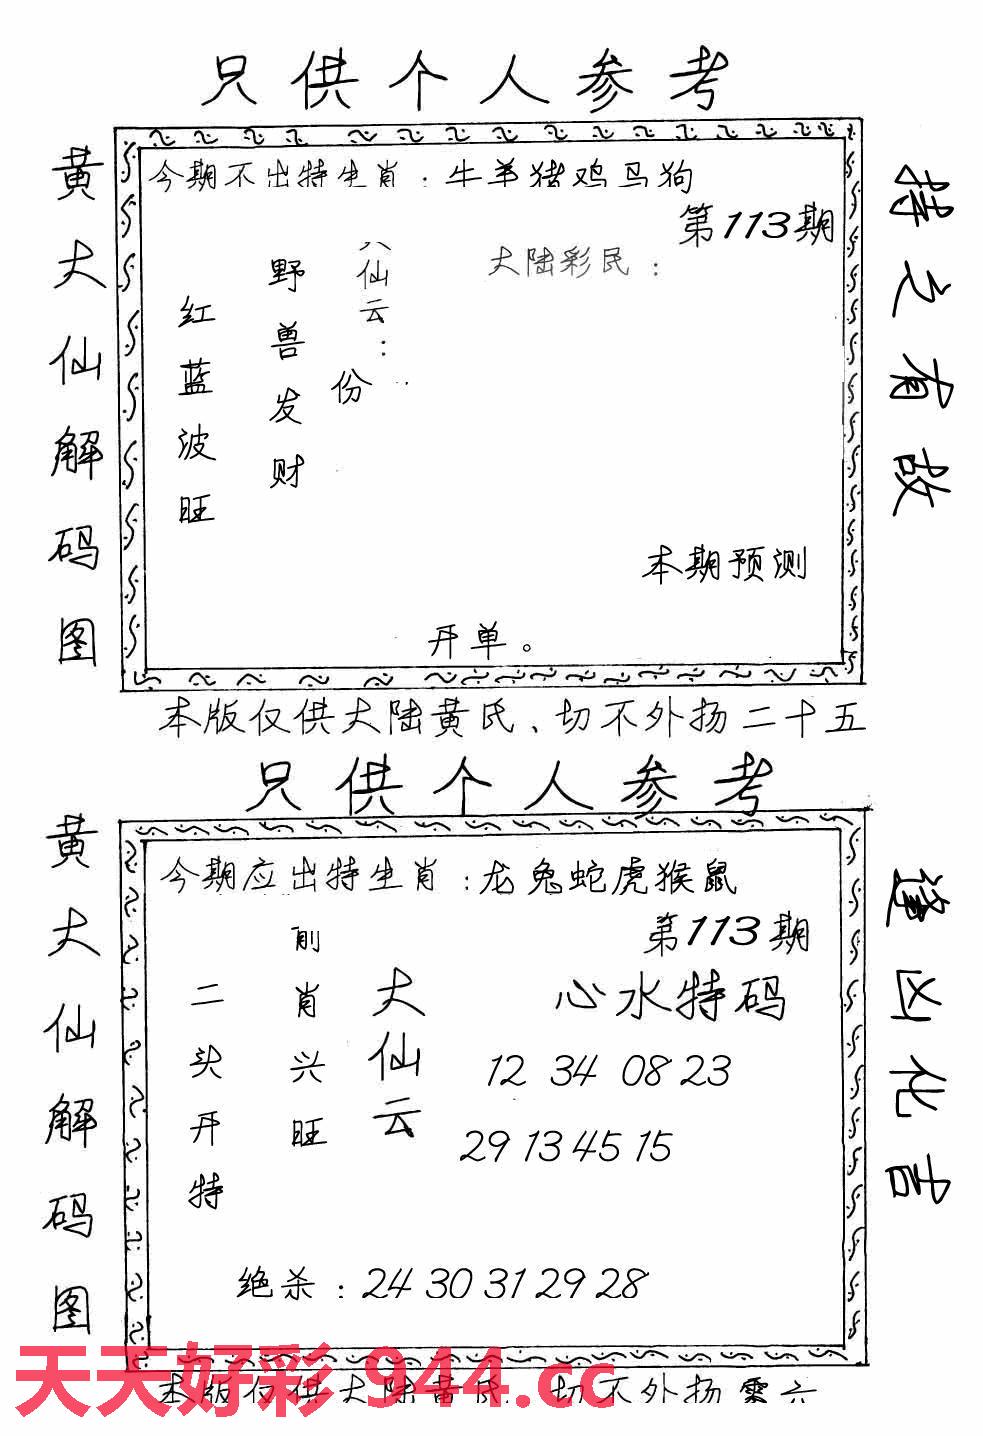 只供个人参考
黄大仙解码图
今期不出特生肖：牛羊猪鸡马狗
第113期
大陆彩民：
仙云：
份
野兽发财
红蓝波旺
本期预测
开单。
持之有故
本版仅供大陆黄氏、切不外扬二十五
只供个人参考
黄大仙解码图
今期应出特生肖：龙兔蛇虎猴鼠
第113期
心水特码
12 34 08 23
29 13 45 15
大仙云
前肖兴旺
二头开特
绝杀：24 30 31 29 28
逢凶化吉
天天好彩 944.cc
本版仅供大陆黄氏、切不外扬零六